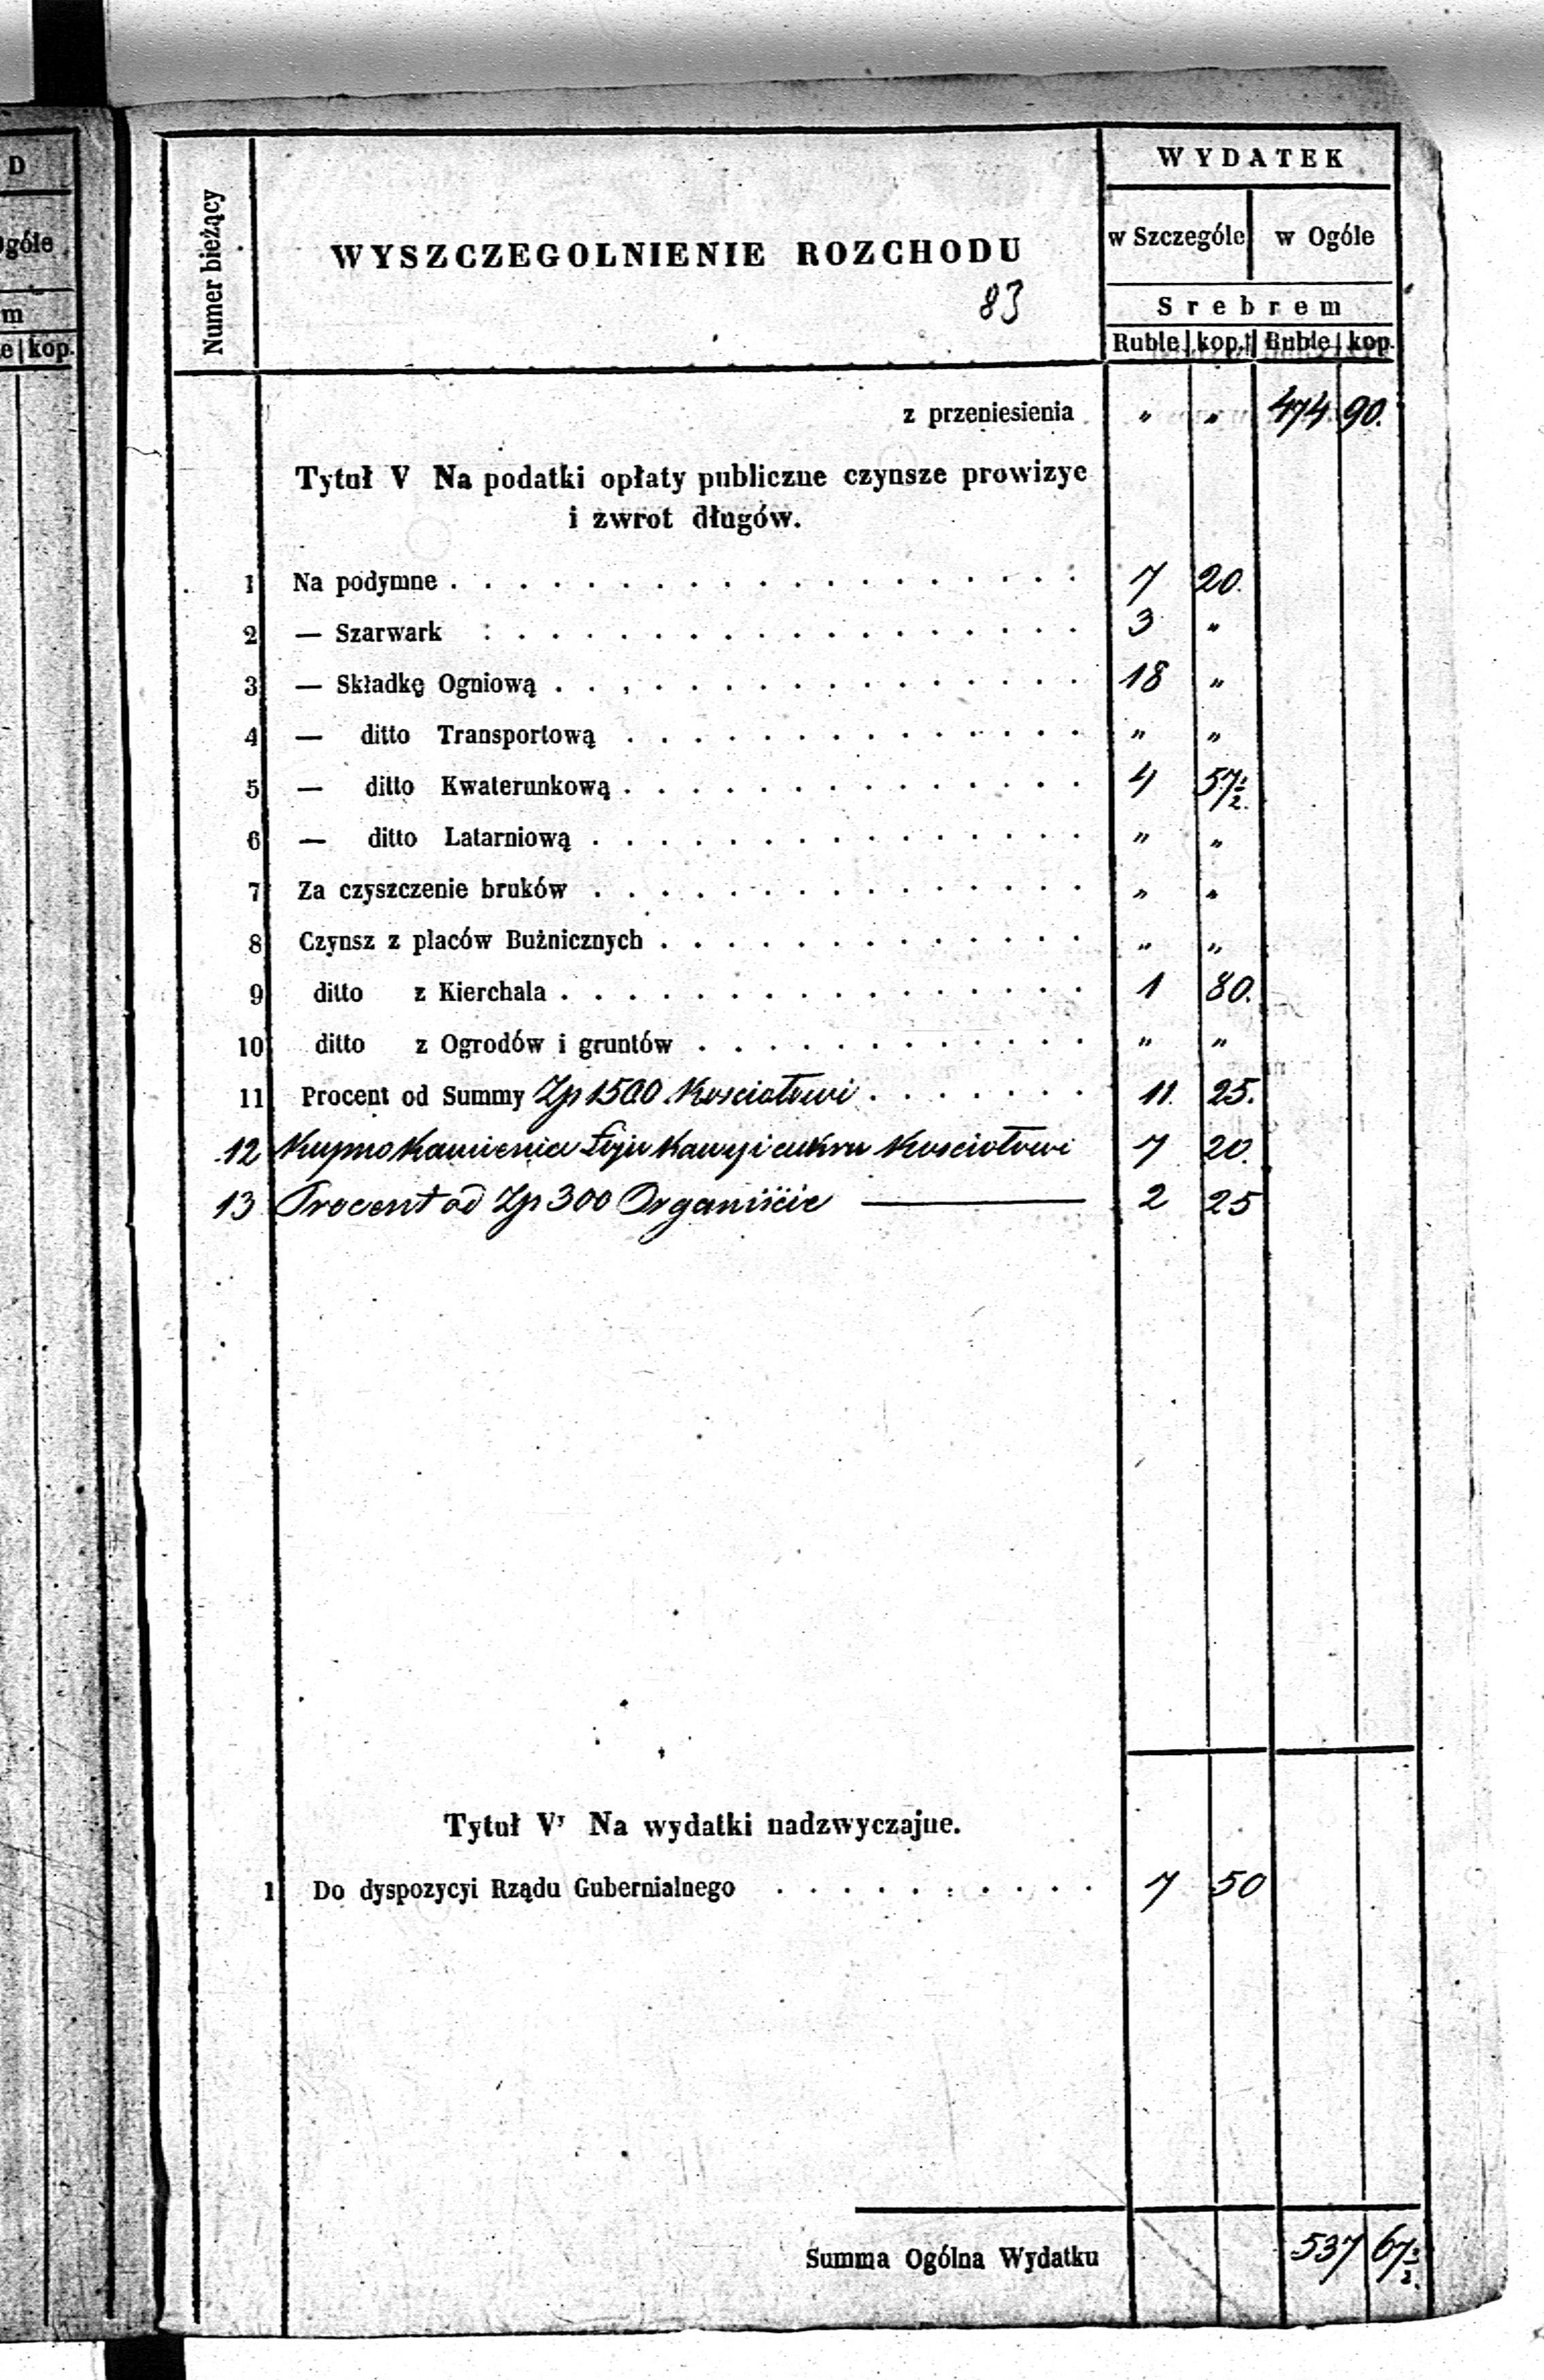 D
góle
m
e kop.
Numer bieżący
WYSZCZEGOLNIENIE ROZCHODU
83
WYDATEK
w Szczególe w Ogóle
Srebrem
Ruble kop. Ruble kop.
z przeniesienia „ „ 474 90.
Tytuł V Na podatki opłaty publiczne czynsze prowizye
i zwrot długów.
1 Na podymne . . . . 7 20.
2 — Szarwark . . . . 3 „
3 — Składkę Ogniową . . . . 18 „
4 — ditto Transportową . . . . „ „
5 — ditto Kwaterunkową . . . . 4 57½.
6 — ditto Latarniową . . . . „ „
7 Za czyszczenie bruków . . . . „ „
8 Czynsz z placów Bużnicznych . . . . „ „
9 ditto z Kierchala . . . . 1 80.
10 ditto z Ogrodów i gruntów . . . . „ „
11 Procent od Summy Zp 1500 Kosciołowi . . . . 11. 25.
12 Kupno Kamienia Łoju Kawy i cukru Kosciołowi 7 20.
13 Procent od Zp 300 Organiście — 2 25
Tytuł V' Na wydatki nadzwyczajne.
1 Do dyspozycyi Rządu Gubernialnego . . . . 7 50
Summa Ogólna Wydatku 537 67½.